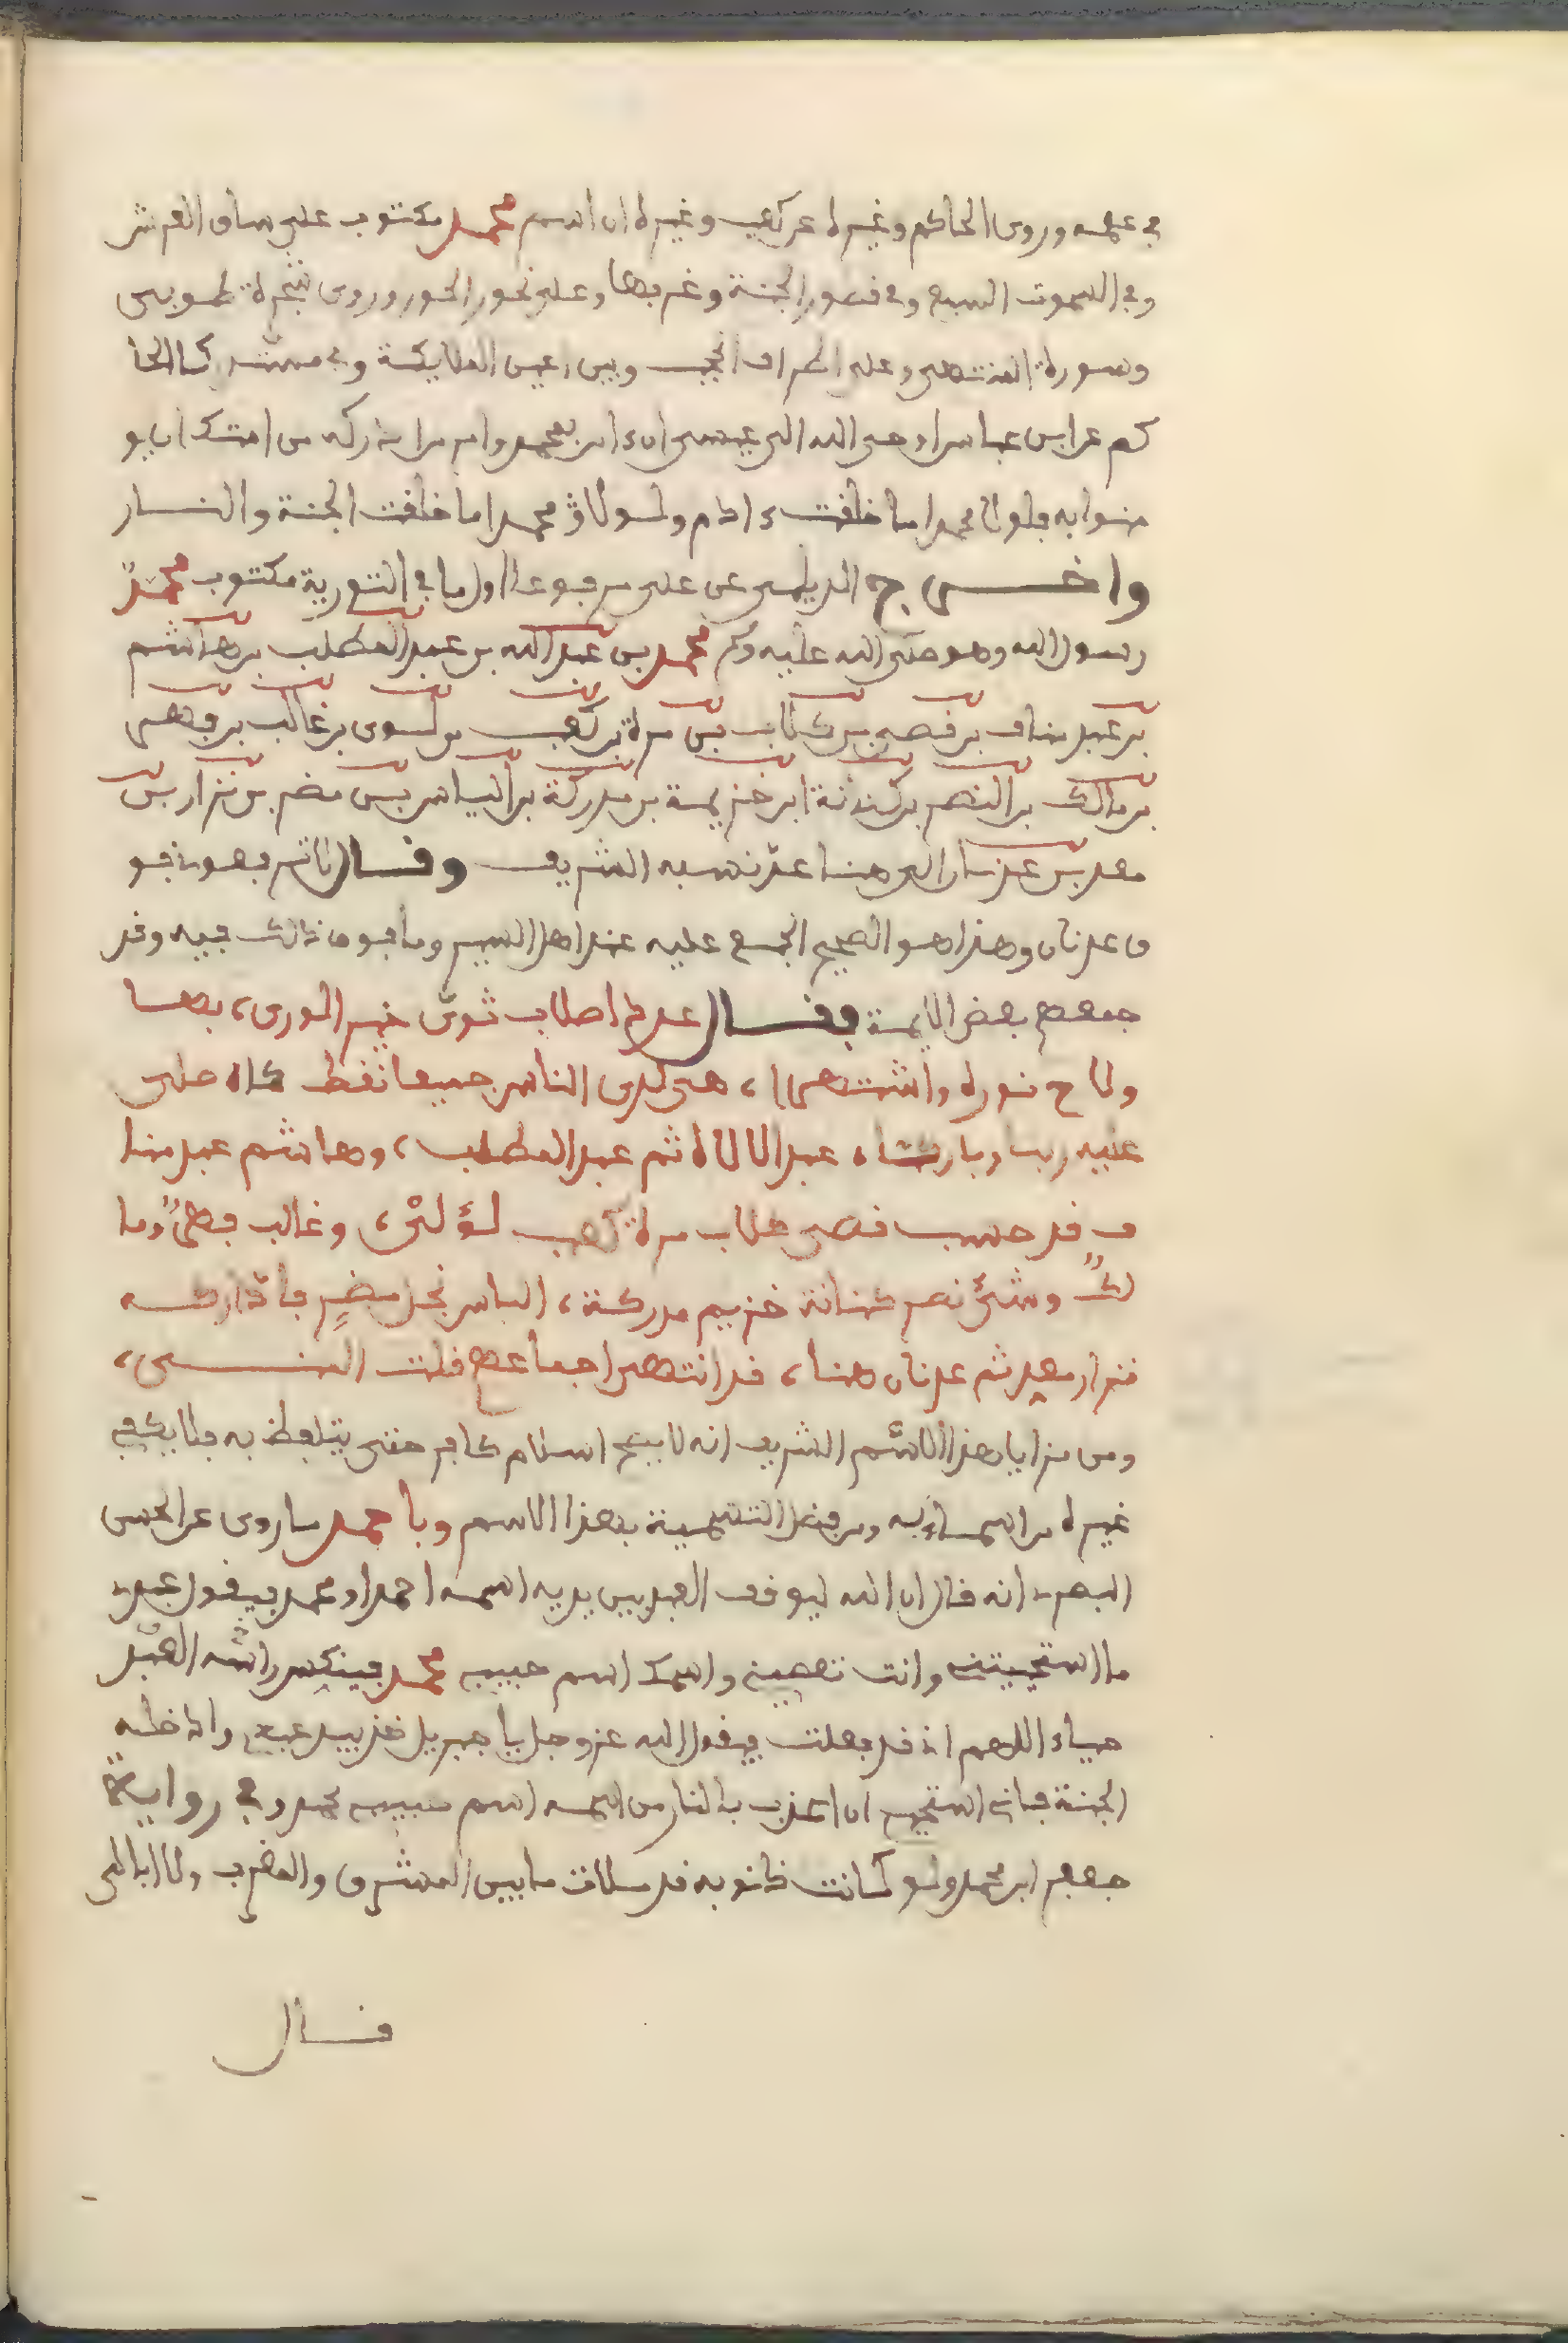 في عمله وروى الحاكم وغيره عن كعب وغيره ان اسم محمد مكتوب على ساق العرش
وفي السموت السبع وفي قصور الجنة وغرفها وعلى نحور الحور وروى شجرة طوبى
وسورة المنتهى وعلى اطراف الحجب وبين اعين الملايكة وفي كـالحا
كم عن ابن عباس اوحى الله الى عيسى ان امن بمحمد وامر من ادركه من امتك ان يو
منوا به فلولا محمد ما خلقت ادم ولولا محمد ما خلقت الجنة والنــار
واخــرج الديلمي عن علي مرفوعا اول ما في التورية مكتوب محمد
رسول الله وهو صلى الله عليه وسلم محمد بن عبد الله بن عبد المطلب بن هاشم
بن عبد مناف بن قصي بن كلاب بن مرة بن كعب بن لـوى بن غالب بن فهـر
بن مالك بن النضر بن كنانة ابن خزيمة بن مدركة بن الياس بن مضر بن نزار بن
معد بن عدنان الى هنا عد نسبه الشريف وقــال فمن فو
ق عدنان وهذا هو الصحيح المجمع عليه عند اهل السير وما فوق ذالك فيه وقد
جمعهم بعض الايمة فقــال اصلاب ثوى خير الورى، بهــا
ولاح نوره واشتهـرا، هـي لدى الناس جميعا تـ صلى
عليه ربنا وبارك عبد الالاه ثم عبد المطلب، وهاشم عبد منا
ف قد حسب قصي كلاب مرة كعب لـؤلـي، وغالب فهـرٌ وما
لكٌ نضر كنانة خزيم مدركة، الياس نجل مضرٍ
نزار معد ثم عدنان هنا، قد انتهـى اجماعهم قلت المنــى،
ومن مزايا هذا الاسم الشريف انه لا يصح اسلام كافر حتى يتلفظ به فلا يكفي
غيره من اسمائه ومن فضل التسمية بهذا الاسم وباحمد ما روى عن الحسن
البصري انه قال ان الله ليوقف العبد بين يديه اسمه احمد او محمد فيقول عبدي
ما استحييتني وانت تعصيني واسمك اسم حبيبي محمد فينكس راسه العبد
حياء اللهم اني قد فعلت فيقول الله عز وجل يا جبريل خذ بيد عبدي وادخله
الجنة فاني استحيي ان اعذب بالنار من اسمه اسم حبيبي محمد وفي رواية
جعفر ابن محمد ولو كانت ذنوبه قد ملات ما بين المشرق والمغرب ولا ابالي
قــال